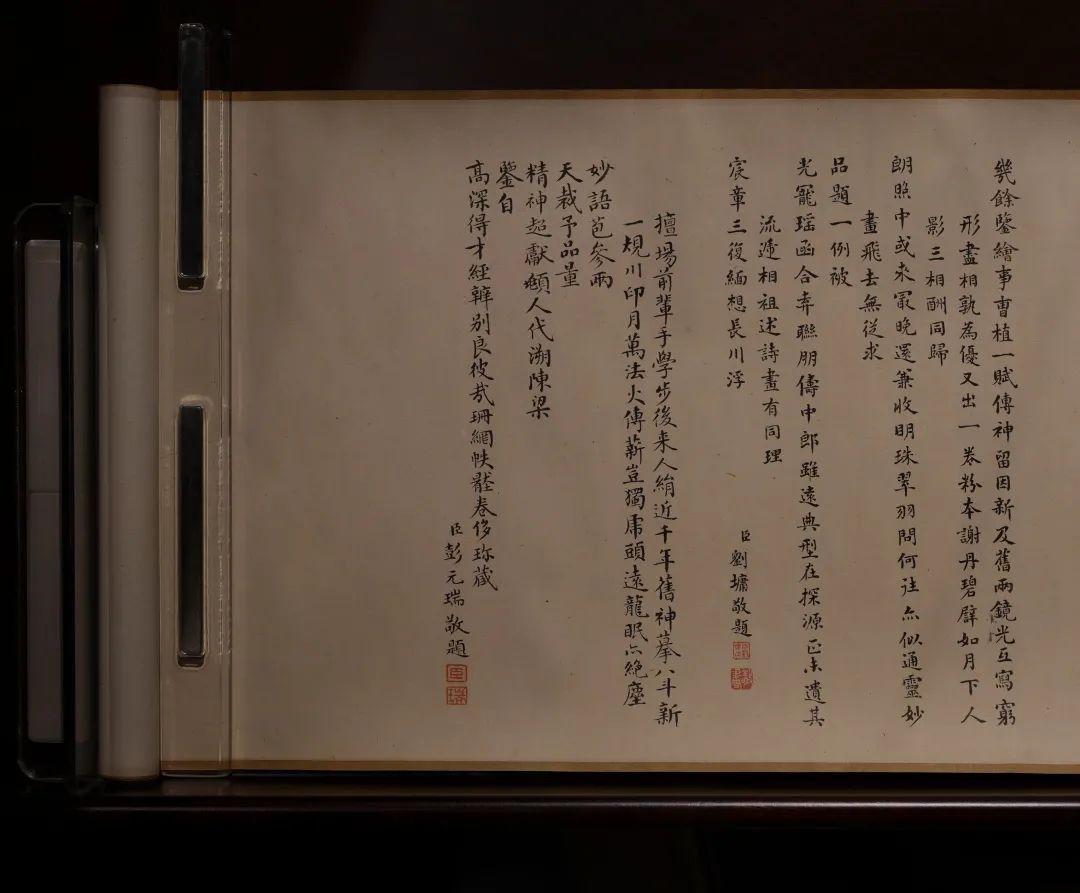 幾餘鑒繪事曹植一賦傳神留因新及舊兩鏡光互寫窮
形盡相孰為優又出一卷粉本謝丹碧譬如月下人
影三相酬同歸
朗照中或来最晚還兼收明珠翠羽問何往亦似通靈妙
畫飛去無從求
品題一例被
光寵瑶函合弆聯朋儔中郎雖遠典型在探源正未遺其
流遞相祖述詩畫有同理
宸章三復緬想長川浮
臣劉墉敬題
擅場前輩手學步後来人絹近千年舊神摹八斗新
一規川印月萬法火傳薪豈獨虎頭遠龍眠亦絕塵
妙語苞參兩
天裁予品量
精神超獻頫人代溯陳梁
鑒自
高深得才經辨别良彼哉珊網帙卷侈珍藏
臣彭元瑞敬題